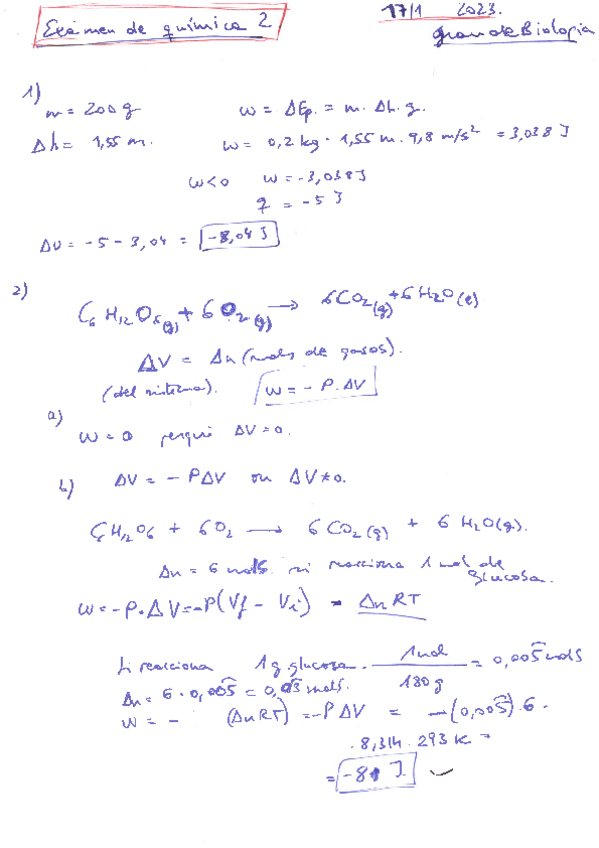 Exámen de química 2
17/1 2023.
Grau de Biologia
1)
m = 200 g
w = ΔEp. = m. Δh. g.
Δh = 1,55 m.
w = 0,2 kg · 1,55 m. 9,8 m/s² = 3,038 J
w<0 w = -3,038 J
q = -5 J
ΔU = -5 - 3,04 = -8,04 J
2)
C6 H12O6(g) + 6 O2 (g) → 6CO2(g) + 6 H2O(l)
ΔV = Δn (mols de gasos).
(del sistema). w = - P. ΔV
a)
w = 0 perquè ΔV=0.
b) ΔV = - PΔV on ΔV≠0.
C6H12O6 + 6O2 → 6 CO2(g) + 6 H2O(g).
Δn = 6 mols si reacciona 1 mol de
glucosa.
w = -P·ΔV = -P(Vf - Vi) = ΔnRT
Si reacciona 1g.glucosa. 1mol / 180 g = 0,005 mols
Δn = 6 · 0,005 = 0,03 mols.
w = - (ΔnRT) = -PΔV = -(0,005).6.
. 8,314 . 293 K =
= -81 J.